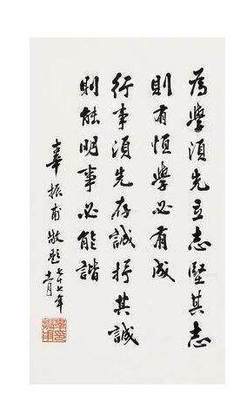 為學須先立志堅其志
則有恒學必有成
行事須先存誠抒其誠
則能明事必能諧
辜振甫敬題
七十七年
十一月